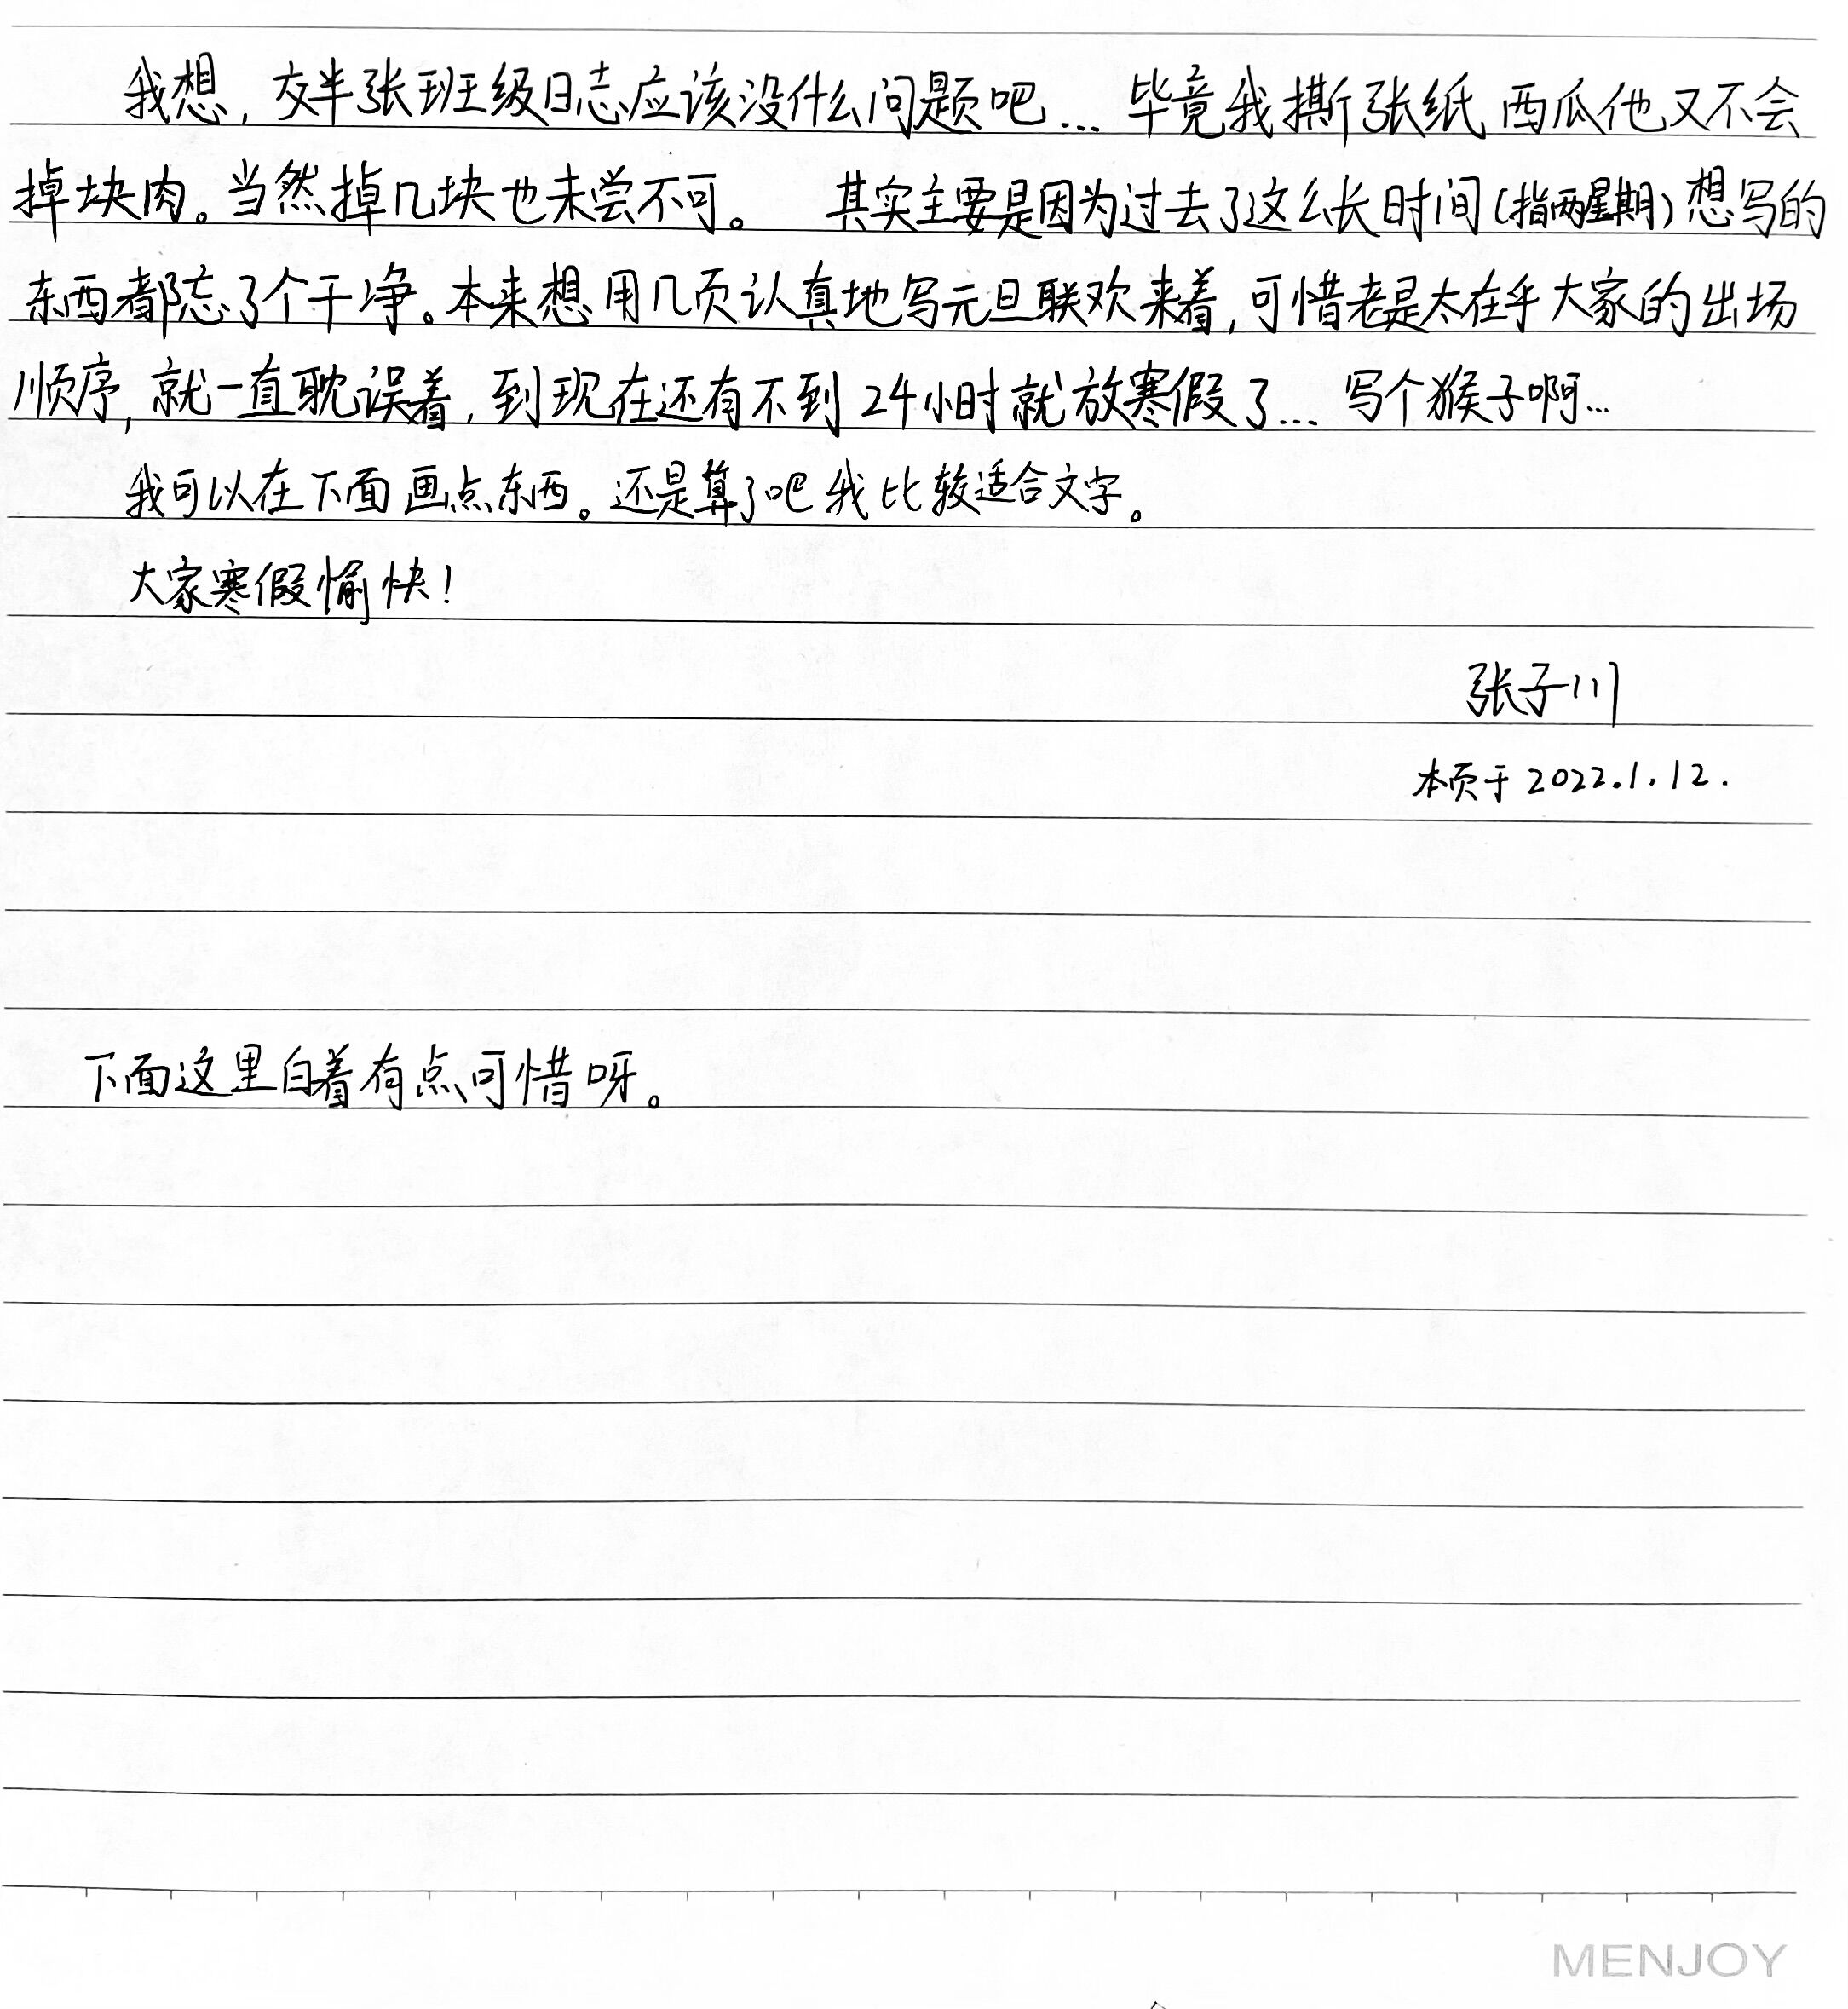 我想，交半张班级日志应该没什么问题吧... 毕竟我撕张纸西瓜他又不会
掉块肉。当然掉几块也未尝不可。 其实主要是因为过去了这么长时间(指两星期)想写的
东西都忘了个干净。本来想用几页认真地写元旦联欢来着，可惜老是太在乎大家的出场
顺序，就一直耽误着，到现在还有不到24小时就放寒假了... 写个猴子啊...
我可以在下面画点东西。还是算了吧我比较适合文字。
大家寒假愉快！
张子川
本页于2022.1.12.
下面这里白着有点可惜呀。
MENJOY